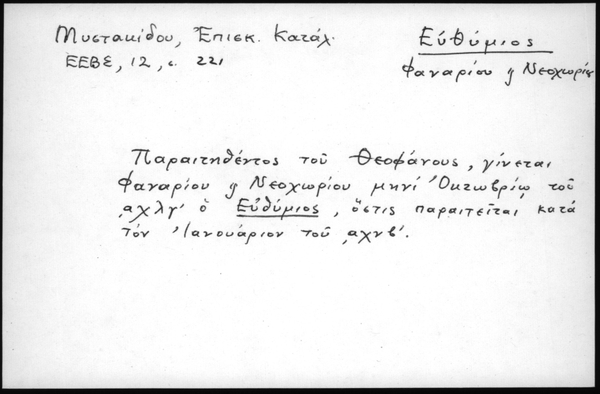 Μυστακίδου, Ἐπισκ. Κατάλ.
ΕΕΒΣ, 12, σ. 221
Εὐθύμιος
Φαναρίου ἤ Νεοχωρίου
Παραιτηθέντος τοῦ Θεοφάνους, γίνεται
Φαναρίου ἤ Νεοχωρίου μηνί Ὀκτωβρίῳ τοῦ
͵αχλγ' ὁ Εὐθύμιος, ὅστις παραιτεῖται κατά
τόν Ἰανουάριον τοῦ ͵αχνβ'.